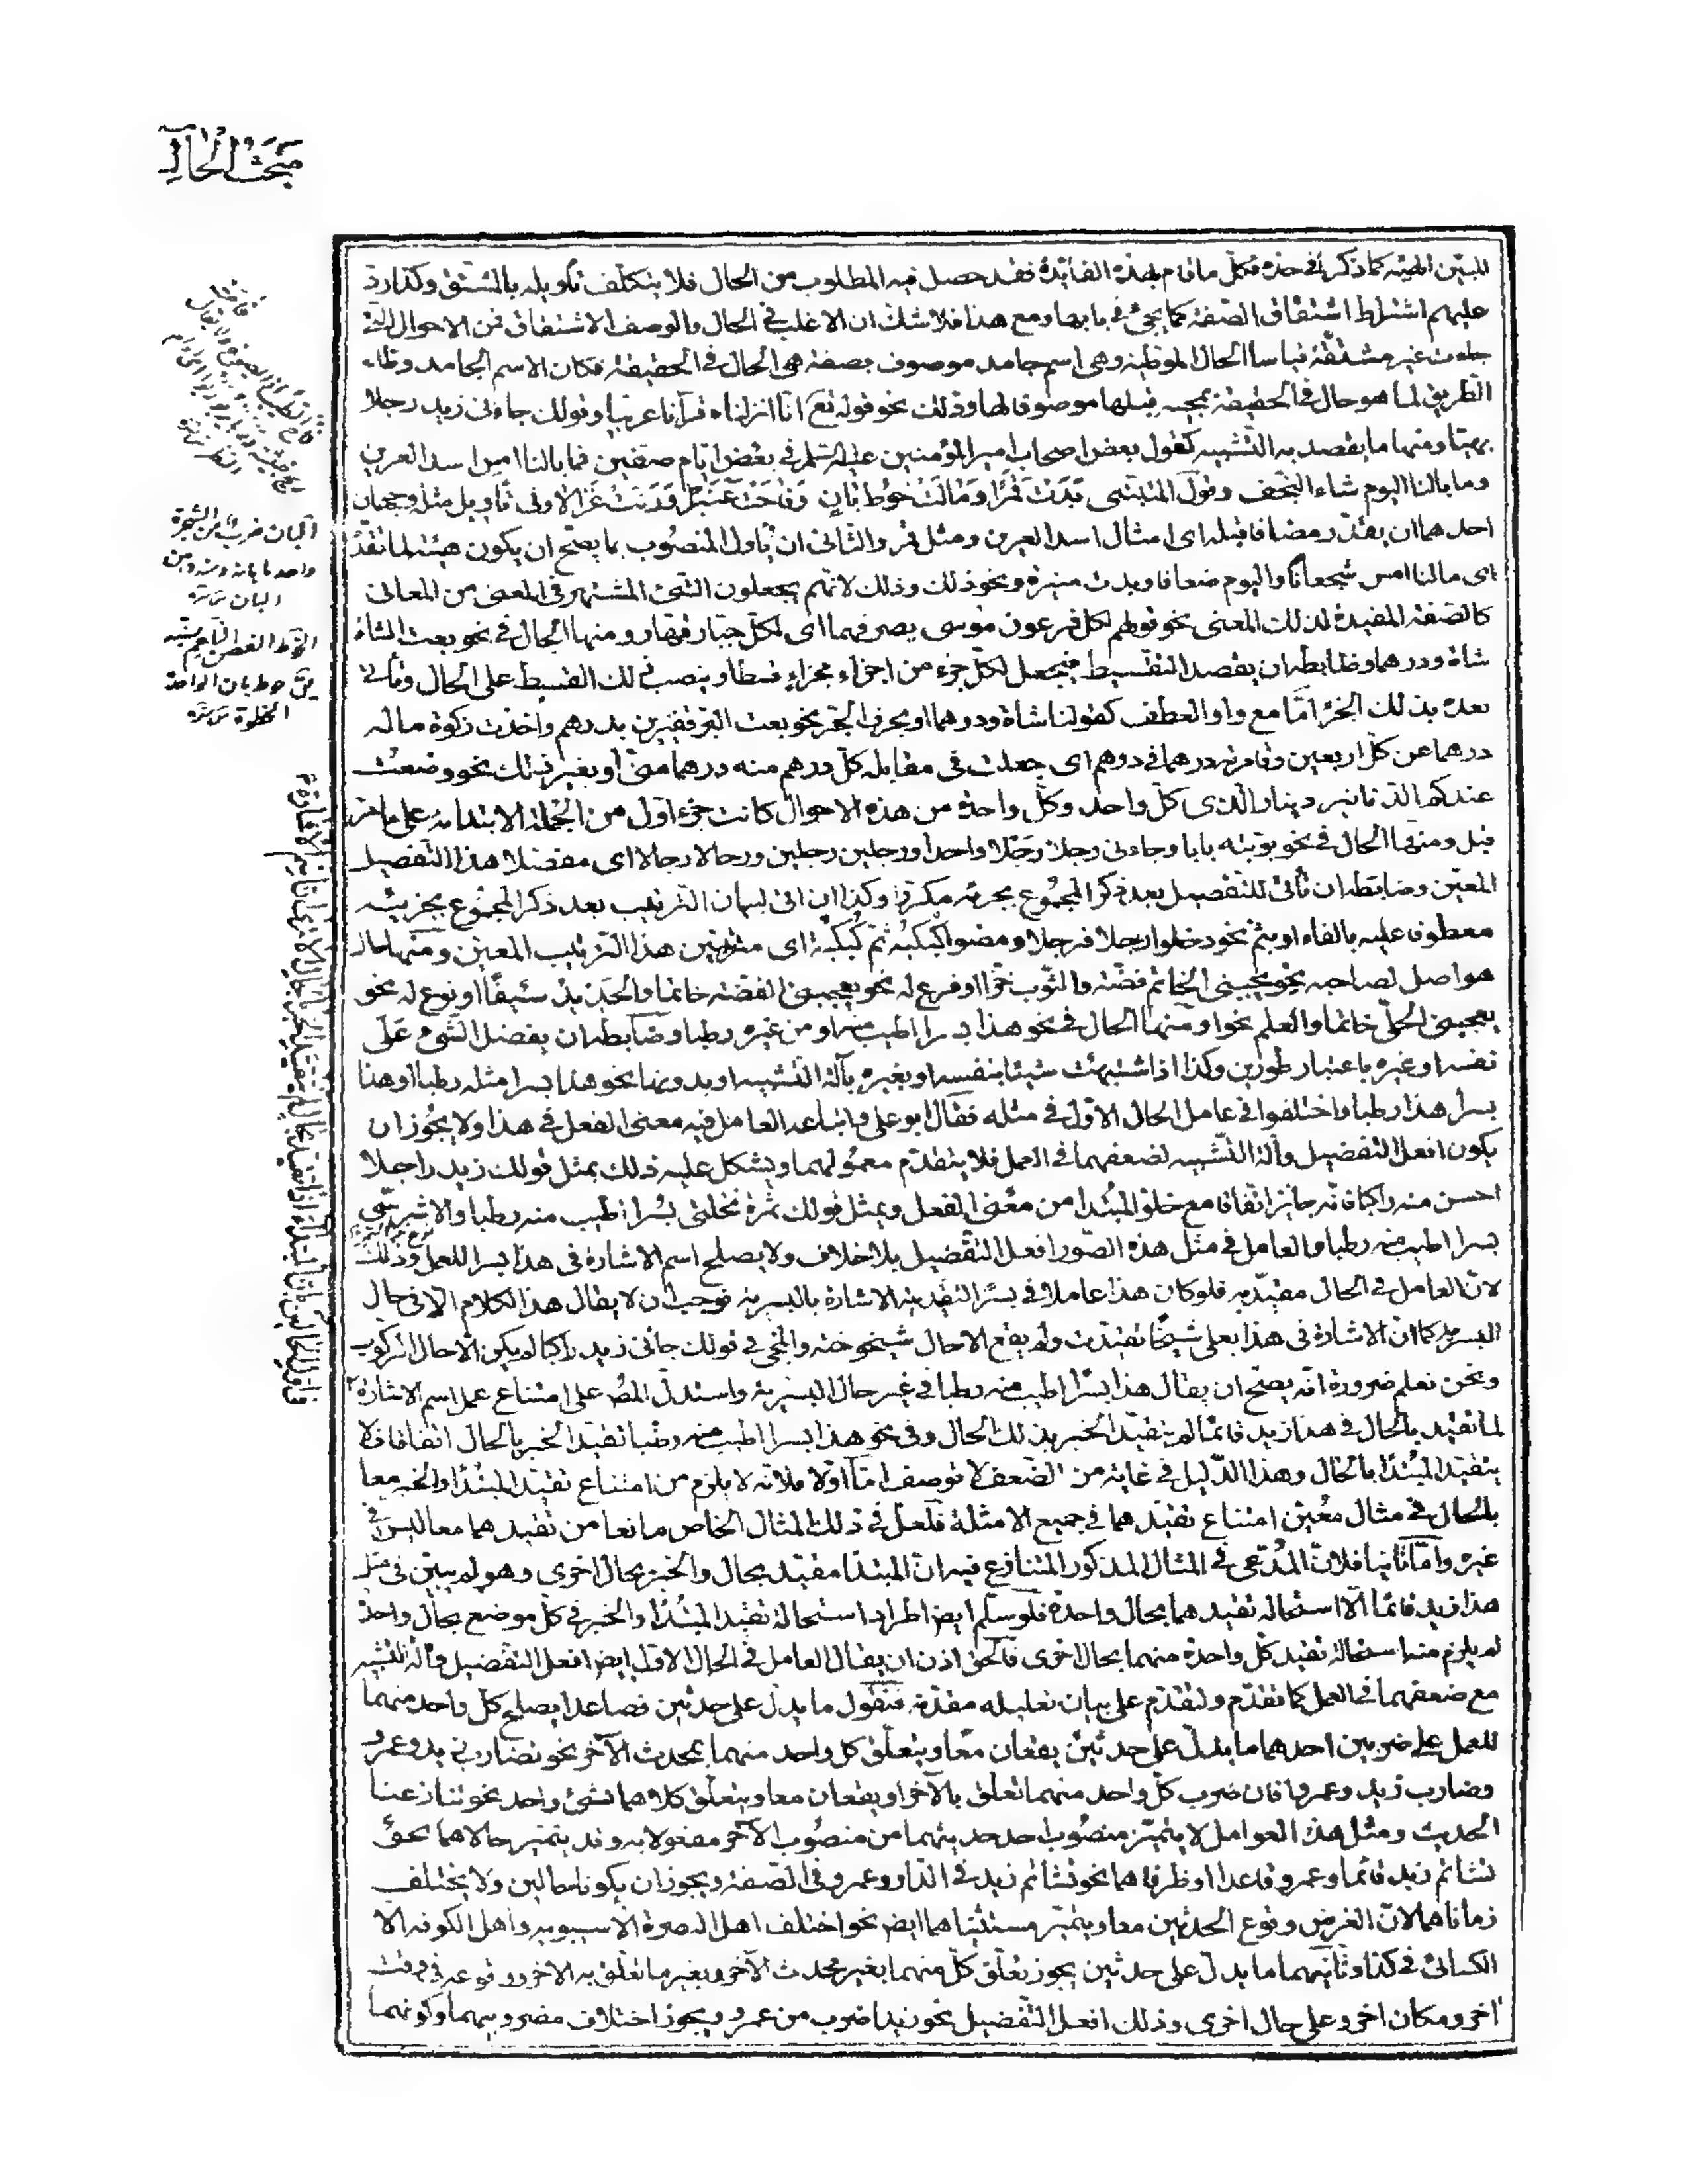 مبحث الحال
المبيّن الهيئة كما ذكر فى حدّه فكلّ ما قام بهذه الفائدة فقد حصل فيه المطلوب من الحال فلا يتكلّف تأويله بالمشتق وكذا ردّ
عليهم اشتراط اشتقاق الصّفة كما يجئ فى بابها ومع هذا فلا شكّ ان الاغلب فى الحال والوصف الاشتقاق فمن الاحوال التى
جاءت غير مشتقّة قياسا الحال الموطّئة وهى اسم جامد موصوف بصفة هى الحال فى الحقيقة فكان الاسم الجامد وطّاء
الطريق لما هو حال فى الحقيقة بمجيئه قبلها موصوفا لها وذلك نحو قوله تع انّا انزلناه قرآنا عربيّا وقولك جاءنى زيد رجلا
بهيّا ومنها ما يقصد به التشبيه كقول بعض اصحاب امير المؤمنين عليه السّلم فى بعض ايّام صفّين فما بالنا امس اسد العرين
وما بالنا اليوم شاء النّجف وقول المتنبّى بَدَتْ قَمَرًا وَمَالَتْ خُوطَ بَانٍ وَفَاحَتْ عَنْبَرًا وَرَنَتْ غَزَالا وفى تأويل مثله وجهان
احدهما ان يقدّر مضافا قبله اى امثال اسد العرين ومثل قمر والثانى ان يأوّل المنصوب بما يصحّ ان يكون هيئة لما تقدّم
اى ما لنا امس شجعانا واليوم ضعافا وبدت منيرة ونحو ذلك وذلك لانّهم يجعلون الشّئ المشتهر فى المعنى من المعانى
كالصّفة المفيدة لذلك المعنى نحو قولهم لكلّ فرعون موسى يصرفهما اى لكلّ جبّار قهّار ومنها الحال فى نحو بعت الشاة
شاة ودرهما وضابطه ان يقصد التقسيط فيجعل لكلّ جزء من اجزاء مجزاء قسطا وينصب ذلك القسط على الحال وتأتى
بعده بذلك الجزء امّا مع واو العطف كقولنا شاة ودرهما او بحرف الجرّ نحو بعت البرّ قفيزين بدرهم واخذت زكوة ماله
درهما عن كلّ اربعين وقامرته درهما فى درهم اى جعلت فى مقابله كلّ درهم منه درهما منّى او بغير ذلك نحو وضعت
عندكم الدنانير دينارا لدى كلّ واحد وكلّ واحدة من هذه الاحوال كانت جزء اوّل من الجملة الابتدائية على ما مرّ
قبل ومنها الحال فى نحو بوّبته بابا بابا وجاءنى رجلا رجلا واحدا ورجلين رجلين ورجالا رجالا اى مفصّلا هذا التّفصيل
المعيّن وضابطه ان تأتى للتفصيل بعد ذكر المجموع بجزئه مكرّرا وكذا ان اتى لبيان الترتيب بعد ذكر المجموع بجزئيه
معطوفا عليه بالفاء او بثمّ نحو دخلوا رجلا فرجلا ومضوا كبكبة ثمّ كبكبة اى مترتّبين هذا الترتيب المعين ومنها حال
هو اصل لصاحبه نحو يعجبنى الخاتم فضّة والثّوب خزّا او فرع له نحو يعجبنى الفضّة خاتما والحديد سيفا او نوع له نحو
يعجبنى الحلىّ خاتما والعلم نحوا ومنها الحال فى نحو هذا بسرا اطيب منه او من غيره رطبا وضابطه ان يفضل الشّئ على
نفسه او غيره باعتبار طورين وكذا اذا شبّهت شيئا بنفسه او بغيره بآلة التشبيه او بدونها نحو هذا بسرا مثله رطبا او هذا
بسرا هذا رطبا واختلفوا فى عامل الحال الاوّل فى مثله فقال ابو على واتباعه العامل فيه معنى الفعل فى هذا ولا يجوز ان
يكون افعل التفضيل وآلة التّشبيه لضعفهما فى العمل فلا يتقدّم معمولهما ويشكل عليه ذلك بمثل قولك زيد راجلا
احسن منه راكبا فانّه جائز اتفاقا مع خلوّ المبتدا من معنى الفعل وبمثل قولك ثمرة نخلتى بُسْرا اطيب منه رطبا والاشربتى
بسرا اطيب منه رطبا والعامل فى مثل هذه الصّور افعل التفضيل بلا خلاف ولا يصلح اسم الاشارة فى هذا بسرا للعمل وذلك
لانّ العامل فى الحال مقيّد به فلو كان هذا عاملا فى بسرا لتقيّد به الاشارة بالبسرية فوجب ان لا يقال هذا الكلام الا فى حال
البسرية كما ان الاشارة فى هذا بعلى شيخا تقيّدت ولم يقع الا حال شيخوخته والمجئ فى قولك جاءنى زيد راكبا لم يكن الا حال الركوب
ونحن نعلم ضرورة انّه يصحّ ان يقال هذا بسرا اطيب منه رطبا فى غير حال البسرية واستدلّ المصّ على امتناع عمل اسم الاشارة
لما تقيّد بالحال فى هذا زيد قائما لم يتقيّد الخبر بذلك الحال وفى نحو هذا بسرا اطيب منه رطبا تقيّد الخبر بالحال اتفاقا فلا
يتقيّد المبتدا بالحال وهذا الدّليل فى غاية من الضّعف لا توصف امّا اوّلا فلانّه لا يلزم من امتناع تقيّد المبتدا والخبر معا
بالحال فى مثال معيّن امتناع تقيّدهما فى جميع الامثلة فلعلّ فى ذلك المثال الخاص مانعا من تقيّدهما معا ليس فى
غيره وامّا ثانيا فلانّ المدّعى فى المثال المذكور المتنازع فيه ان المبتدا مقيّد بحال والخبر بحال اخرى وهو لم يبيّن فى مثل
هذا زيد قائما الّا استحالة تقيّدهما بحال واحدة فلو سلّم ايض اطراد استحالة تقيّد المبتدا والخبر فى كلّ موضع بحال واحدة
لم يلزم منه استحالة تقيّد كلّ واحدة منهما بحال اخرى فالحقّ اذن ان يقال العامل فى الحال الاوّل ايض افعل التفضيل وآلة التشبيه
مع ضعفهما فى العمل كما تقدّم ولنقدّم على بيان تعليله مقدّمة فنقول ما يدلّ على حدثين فصاعدا يصلح كلّ واحد منهما
للعمل على ضربين احدهما ما يدلّ على حدثين يقعان معًا ويتعلّق كل واحد منهما بمحدث الآخر نحو تضارب زيد وعمرو
وضارب زيد وعمروا فان ضرب كلّ واحد منهما تعلّق بالآخر او يقعان معا ويتعلّق كلاهما بشئ واحد نحو تنازعنا
الحديث ومثل هذا العوامل لا يتميّز منصوب احد حدثيهما من منصوب الآخر مفعولا به وقد يتميّز حالاهما نحو
تشاتم زيد قائما وعمرو قاعدا او ظرفاهما نحو تشاتم زيد فى الدّار وعمرو فى الصّفة ويجوز ان يكونا حالين ولا يختلف
زماناهما لانّ الغرض وقوع الحدثين معا ويتميّز مستثناهما ايض نحو اختلف اهل البصرة الا سيبويه واهل الكوفة الا
الكسائى فى كذا وثانيهما ما يدلّ على حدثين يجوز تعلّق كلّ منهما بغير محدث الآخر وبغير ما تعلّق به الآخر ووقوعه فى وقت
آخر ومكان اخر وعلى حال اخرى وذلك افعل التفضيل نحو زيد اضرب من عمرو ويجوز اختلاف مضروبيهما وكونهما
البان ضرب من الشجرة
واحدها بانة ومنه دهن
البان
الخوط الغصن الناعم لسنة
يق خوط بان الواحدة